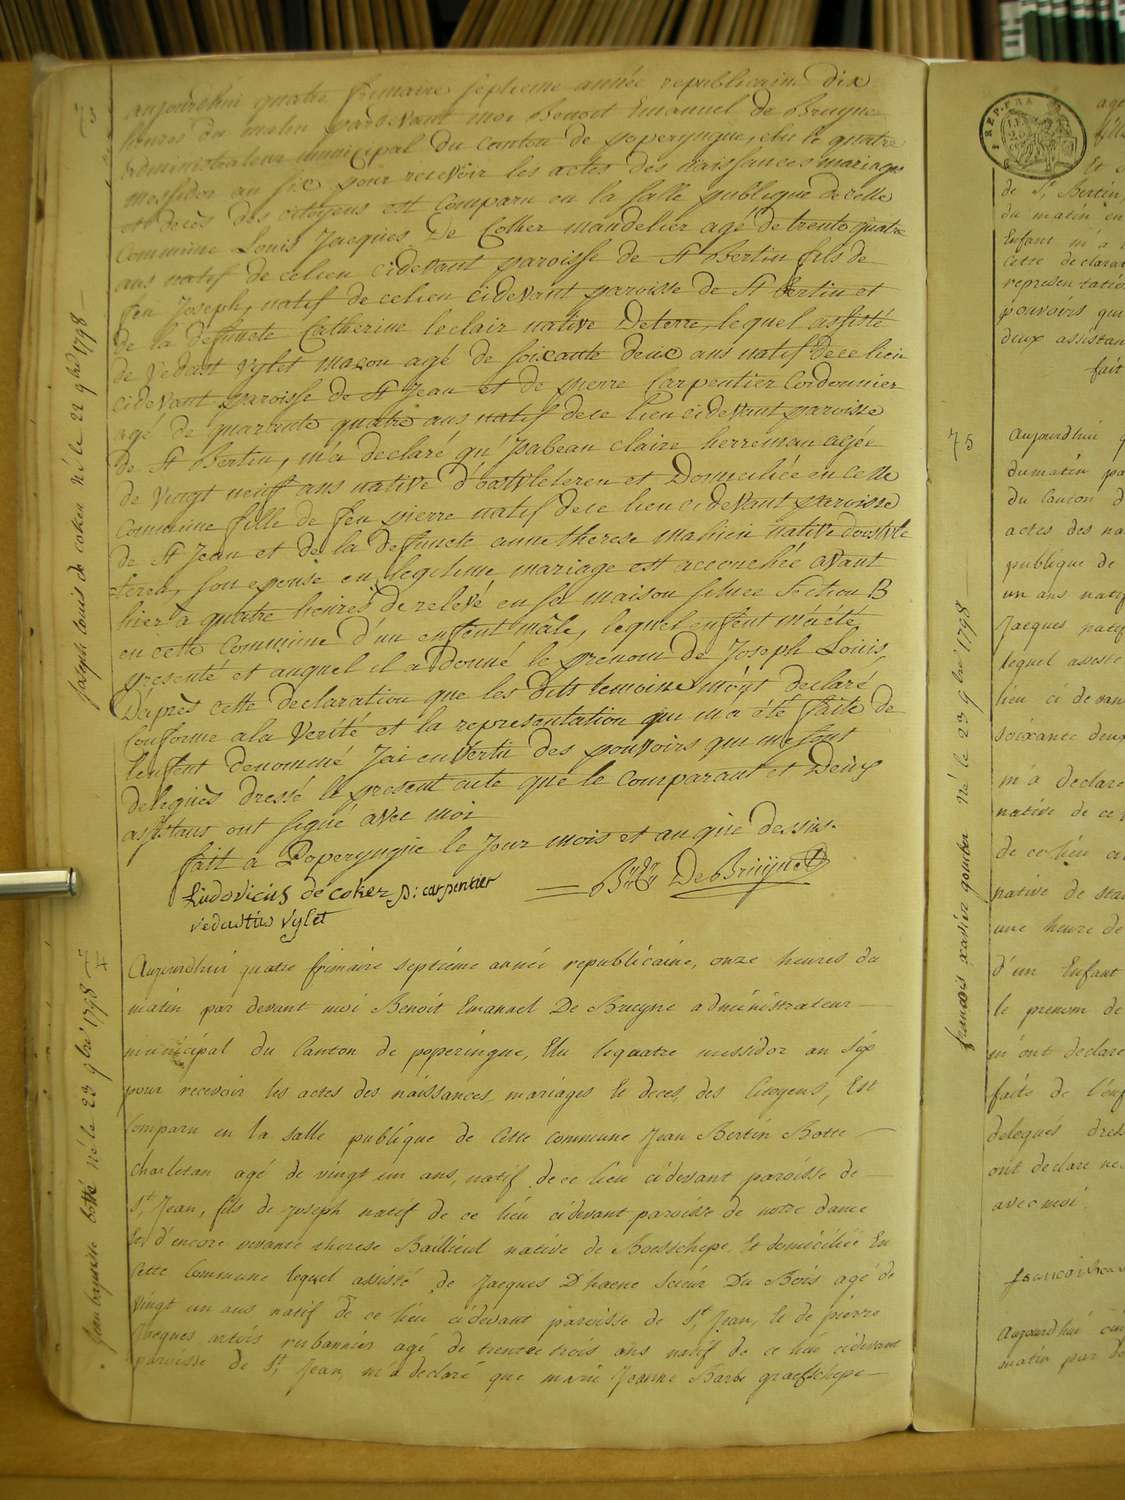 73
aujourdhui quatre frimaire septieme année republicaine dix
heures du matin pardevant moi Benoit Emanuel de Bruyne
administrateur municipal du canton de poperyngue, elu le quatre
messidor an six pour recevoir les actes des naissances mariages
et decès des citoyens est comparu en la salle publique de cette
commune Louis Jacques De Coker mandelier agé de trente quatre
ans natif de celieu cidevant paroisse de St Bertin fils de
feu Joseph, natif de celieu cidevant paroisse de St Bertin et
de la deffuncte Catherine leclair native Deterre, lequel assisté
de Vedast Vylet maçon agé de soixante deux ans natif dece lieu
cidevant paroisse de St Jean et de pierre Carpentier Cordonnier
agé de quarante quatre ans natif dece lieu cidevant paroisse
de St Bertin, m'a declaré qu'Isabeau claire herreman agée
de vingt neuff ans native d'oostvleteren et Domiciliée en cette
commune fille de feu pierre natif dece lieu cidevant paroisse
de St Jean et de la deffuncte anne therese mahieu native doostvle
teren, son epouse en legitime mariage est accouchée avant
hier à quattre heures de relevé en sa maison située Section B
en cette commune d'un enffent mâle, lequel enffent m'a été
presenté et auquel il a donné le prénom de Joseph Louis,
D'après cette declaration que les dits temoins m'ont declaré
conforme a la Verité et la representation qui m'a été faite de
lenffent denommé J'ai en vertu des pouvoirs qui me sont
delegués dressé le present acte que le comparant et Deux
assistans ont signé avec moi
fait a Poperyngue le Jour mois et an que dessus.
Ludovicus de coker p: carpentier
De Bruyne
vedastus vylet
Joseph louis de coker né le 22 9bre 1798
74
Aujourdhui quatre frimaire septiéme année republicaine, onze heures du
matin par devant moi Benoit Emanuel De Bruyne administrateur
municipal du Canton de poperingue, Elu le quatre messidor an six
pour recevoir les actes des naissances mariages et deces, des Citoyens, Est
Comparu en la salle publique de Cette commune Jean Bertin Botte
charletan agé de vingt un ans, natif de ce lieu cidevant paroisse de
St Jean, fils de Joseph natif de ce lieu cidevant paroisse de notre dame
et d'encore vivante therese Baillieul native de Boesschepe, Et domiciliée En
Cette Commune lequel assisté de Jacques D'haene Scieur Du Bois agé de
vingt un ans natif de ce lieu cidevant paroisse de St Jean, Et de pierre
Jacques artois rubannier agé de trente trois ans natif de ce lieu cidevant
paroisse de St Jean, m'a declaré que marie Jeanne Barbe graefschepe
Jean baptiste botté né le 23 9bre 1798
REP. FRA
agé
de St Bertin,
du matin en
Enfant m'a
Cette declarat
representatio
pouvoirs qui
deux assistan
fait
75
Aujourdhui q
dumatin pa
du Canton d
actes des na
publique de
un ans natif
Jacques natif
lequel assisté
lieu ci devan
soixante deux
m'a declaré
native de ce
de ce lieu ci
native de sta
une heure de
d'un Enfant
le prenom de
m'ont declaré
faite de l'enf
delegués dres
ont declaré ne
avec moi.
Aujourd'hui
matin par de
françois xavier né le 23 9bre 1798